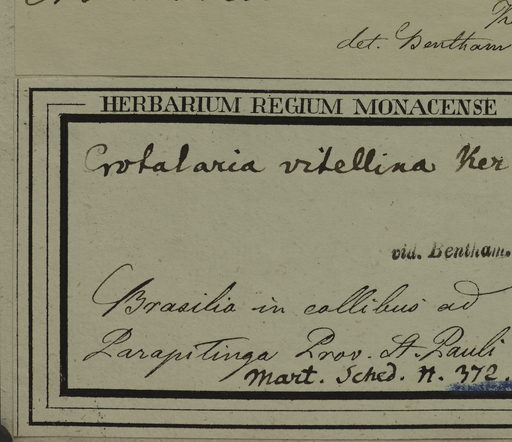 det. Bentham
HERBARIUM REGIUM MONACENSE
Crotalaria vitellina Ker
vid. Bentham.
Brasilia in collibus ad
Parapitinga Prov. St. Pauli
Mart. Sched. n. 372.